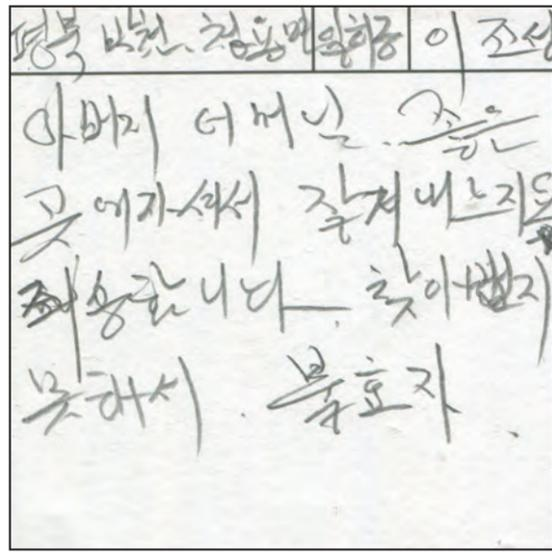 평북 박천. 청용면 이조성
아버지 어머님. 좋은
곳에 가셔서 잘 계시는지요
죄송합니다. 찾아뵙지
못해서. 불효자.